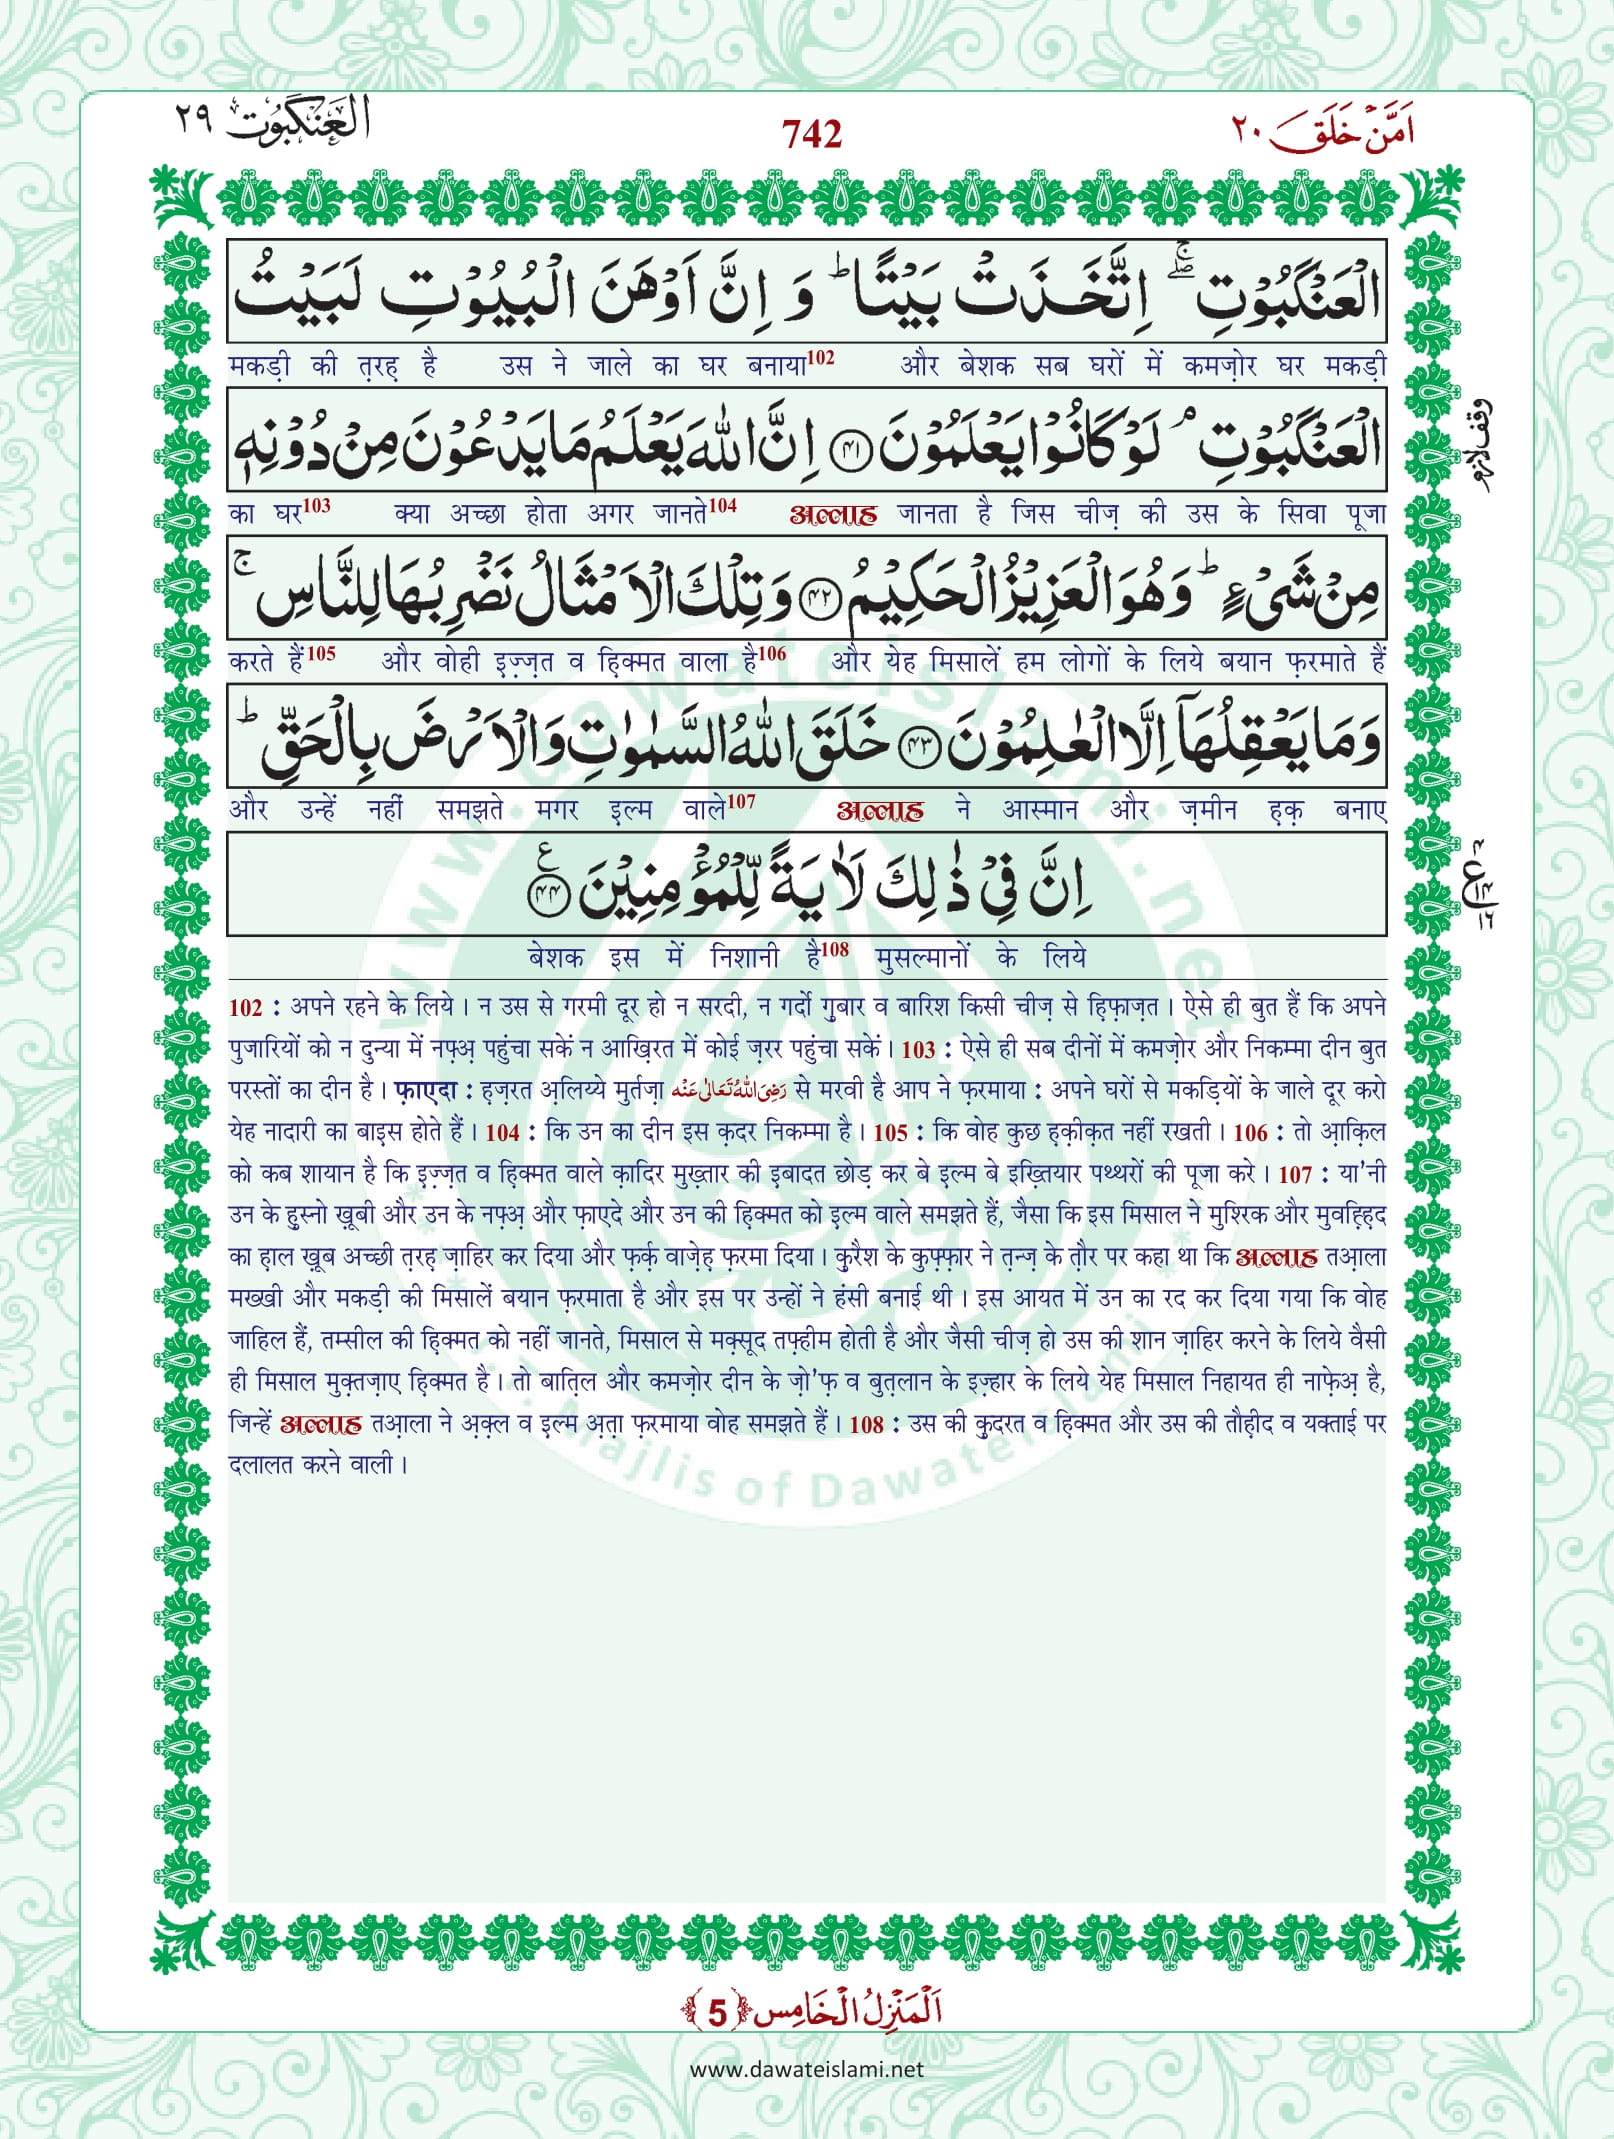 العنکبوت ٢٩
742
اَمَّنْ خَلَقَ ٢٠
الْعَنْكَبُوْتِ ۖۚ اِتَّخَذَتْ بَیْتًا ؕ وَ اِنَّ اَوْهَنَ الْبُیُوْتِ لَبَیْتُ
मकड़ी की त़रह़ है उस ने जाले का घर बनाया102 और बेशक सब घरों में कमज़ोर घर मकड़ी
الْعَنْكَبُوْتِ ۘ لَوْ كَانُوْا یَعْلَمُوْنَ ﴿۴۱﴾ اِنَّ اللّٰهَ یَعْلَمُ مَا یَدْعُوْنَ مِنْ دُوْنِهٖ
وقف لازم
का घर103 क्या अच्छा होता अगर जानते104 अल्लाह जानता है जिस चीज़ की उस के सिवा पूजा
مِنْ شَیْءٍ ؕ وَ هُوَ الْعَزِیْزُ الْحَكِیْمُ ﴿۴۲﴾ وَ تِلْكَ الْاَمْثَالُ نَضْرِبُهَا لِلنَّاسِ ۚ
करते हैं105 और वोही इ़ज़्ज़त व ह़िक्मत वाला है106 और येह मिसालें हम लोगों के लिये बयान फ़रमाते हैं
وَ مَا یَعْقِلُهَاۤ اِلَّا الْعٰلِمُوْنَ ﴿۴۳﴾ خَلَقَ اللّٰهُ السَّمٰوٰتِ وَ الْاَرْضَ بِالْحَقِّ ؕ
और उन्हें नहीं समझते मगर इ़ल्म वाले107 अल्लाह ने आस्मान और ज़मीन ह़क़ बनाए
اِنَّ فِیْ ذٰلِكَ لَاٰیَةً لِّلْمُؤْمِنِیْنَ ﴿۴۴﴾ ع
बेशक इस में निशानी है108 मुसल्मानों के लिये
102 : अपने रहने के लिये। न उस से गरमी दूर हो न सरदी, न गर्दो गु़बार व बारिश किसी चीज़ से ह़िफ़ाज़त। ऐसे ही बुत हैं कि अपने
पुजारियों को न दुन्या में नफ़्अ़ पहुंचा सकें न आख़िरत में कोई ज़रर पहुंचा सकें। 103 : ऐसे ही सब दीनों में कमज़ोर और निकम्मा दीन बुत
परस्तों का दीन है। फ़ाएदा : ह़ज़रत अ़लिय्ये मुर्तज़ा رَضِیَ اللهُ تَعَالٰی عَنْه से मरवी है आप ने फ़रमाया : अपने घरों से मकड़ियों के जाले दूर करो
येह नादारी का बाइ़स होते हैं। 104 : कि उन का दीन इस क़दर निकम्मा है। 105 : कि वोह कुछ ह़क़ीक़त नहीं रखती। 106 : तो आ़क़िल
को कब शायान है कि इ़ज़्ज़त व ह़िक्मत वाले क़ादिर मुख़्तार की इबादत छोड़ कर बे इ़ल्म बे इख़्तियार पथ्थरों की पूजा करे। 107 : या'नी
उन के ह़ुस्नो ख़ूबी और उन के नफ़्अ़ और फ़ाएदे और उन की ह़िक्मत को इ़ल्म वाले समझते हैं, जैसा कि इस मिसाल ने मुश्रिक और मुवह़्ह़िद
का ह़ाल ख़ूब अच्छी त़रह़ ज़ाहिर कर दिया और फ़र्क़ वाज़ेह़ फ़रमा दिया। कु़रैश के कुफ़्फ़ार ने त़न्ज़ के त़ौर पर कहा था कि अल्लाह तआ़ला
मख्खी और मकड़ी की मिसालें बयान फ़रमाता है और इस पर उन्हों ने हंसी बनाई थी। इस आयत में उन का रद कर दिया गया कि वोह
जाहिल हैं, तम्सील की ह़िक्मत को नहीं जानते, मिसाल से मक़्सूद तफ़्हीम होती है और जैसी चीज़ हो उस की शान ज़ाहिर करने के लिये वैसी
ही मिसाल मुक़्तज़ाए ह़िक्मत है। तो बात़िल और कमज़ोर दीन के ज़ो'फ़ व बुत़लान के इज़्हार के लिये येह मिसाल निहायत ही नाफ़ेअ़ है,
जिन्हें अल्लाह तआ़ला ने अ़क़्ल व इ़ल्म अ़त़ा फ़रमाया वोह समझते हैं। 108 : उस की कु़दरत व ह़िक्मत और उस की तौह़ीद व यक्ताई पर
दलालत करने वाली।
www.dawateislami.net
Majlis of Dawateislami
اَلْمَنْزِلُ الْخَامِس ﴿5﴾
www.dawateislami.net